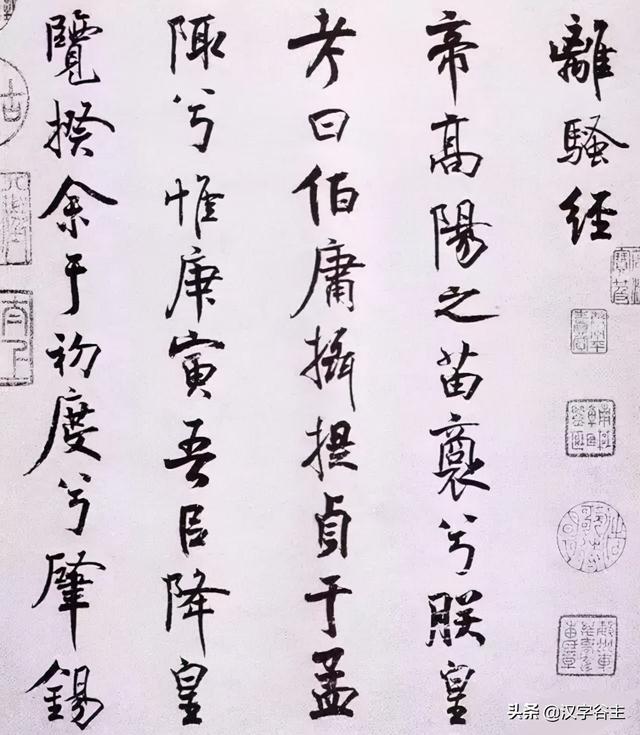 離騷經
帝高陽之苗裔兮朕皇
考曰伯庸攝提貞于孟
陬兮惟庚寅吾㠯降皇
覽揆余于初度兮肇錫
头条 @汉字谷主